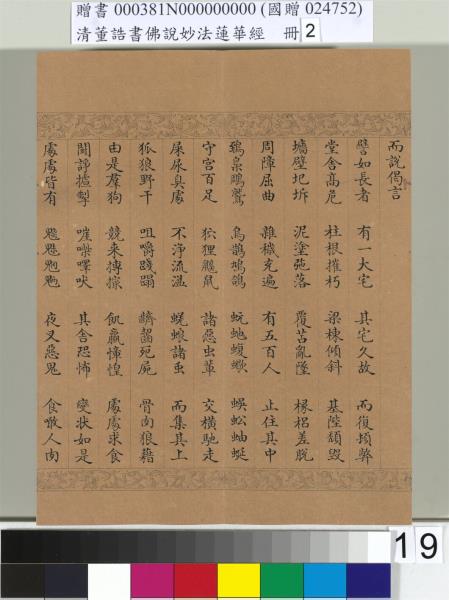 贈書 000381N000000000 (國贈 024752)
清董誥書佛說妙法蓮華經 冊 2
而說偈言
譬如長者 有一大宅 其宅久故 而復頓弊
堂舍高危 柱根摧朽 梁棟傾斜 基陛頹毀
墻壁圮坼 泥塗弛落 覆苫亂墜 椽梠差脫
周障屈曲 雜穢充遍 有五百人 止住其中
鵄梟鵰鷲 烏鵲鳩鴿 蚖虵蝮蠍 蜈蚣蚰蜒
守宮百足 狖狸鼷鼠 諸惡虫輩 交橫馳走
屎尿臭處 不淨流溢 蜣蜋諸虫 而集其上
狐狼野干 咀嚼踐蹋 齩齧死屍 骨肉狼藉
由是羣狗 競來搏撮 飢羸慞惶 處處求食
鬪諍摣掣 嘊喍嘷吠 其舍恐怖 變狀如是
處處皆有 魑魅魍魎 夜叉惡鬼 食噉人肉
19